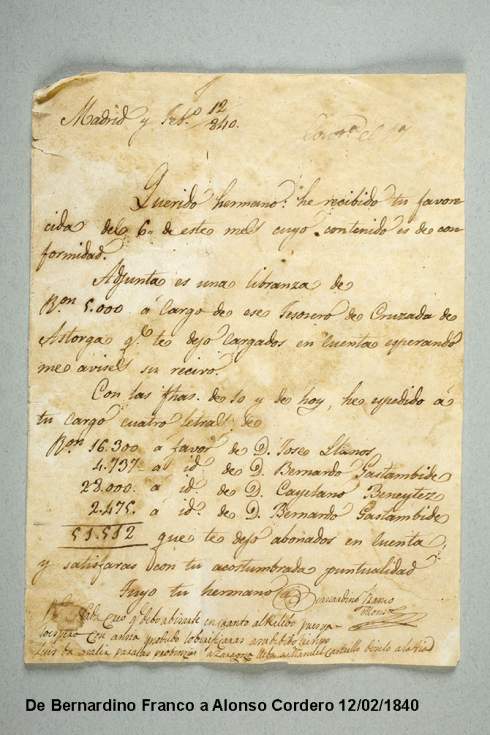 Madrid y Feb.º 12/840.
Querido hermano: he recibido tu favore-
cida del 6,, de este mes cuyo contenido es de con-
formidad.
Adjunta es una libranza de
R.on 5.000 á cargo de ese Tesorero de Cruzada de
Astorga q.e te dejo cargados en cuenta esperando
me avises su recivo.
Con las fhas. de 10 y de hoy, he espedido á
tu cargo cuatro letras de
R.on 16.300 a favor de D. Jose Llanos
4.737 a id. de D. Bernardo Gastambide
28.000 a id. de D. Cayetano Beneytez
2.475 a id. de D. Bernardo Gastambide
51.512 que te dejo abonados en cuenta
y satisfaras con tu acostumbrada puntualidad
Tuyo tu hermano
Bernardino Franco
Alonso
De Bernardino Franco a Alonso Cordero 12/02/1840